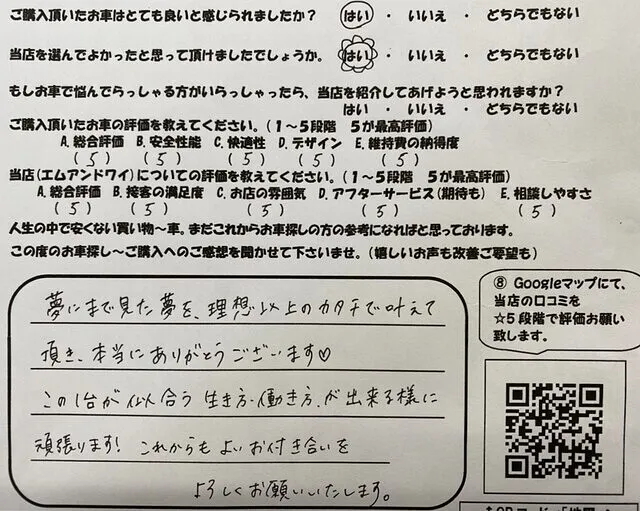 ご購入頂いたお車はとても良いと感じられましたか? はい ・ いいえ ・ どちらでもない
当店を選んでよかったと思って頂けましたでしょうか。 はい ・ いいえ ・ どちらでもない
もしお車で悩んでらっしゃる方がいらっしゃったら、当店を紹介してあげようと思われますか?
はい ・ いいえ ・ どちらでもない
ご購入頂いたお車の評価を教えてください。(1～5段階 5が最高評価)
A. 総合評価 B. 安全性能 C. 快適性 D. デザイン E. 維持費の納得度
(5) (5) (5) (5) (5)
当店(エムアンドワイ)についての評価を教えてください。(1～5段階 5が最高評価)
A. 総合評価 B. 接客の満足度 C. お店の雰囲気 D. アフターサービス(期待も) E. 相談しやすさ
(5) (5) (5) (5) (5)
人生の中で安くない買い物～車。まだこれからお車探しの方の参考になればと思っております。
この度のお車探し～ご購入へのご感想を聞かせて下さいませ。(嬉しいお声も改善ご要望も)
夢にまで見た夢を、理想以上のカタチで叶えて
頂き、本当にありがとうございます♡
この1台が似合う生き方・働き方が出来る様に
頑張ります! これからもよいお付き合いを
よろしくお願いいたします。
⑧ Googleマップにて、
当店の口コミを
☆5段階で評価お願い
致します。